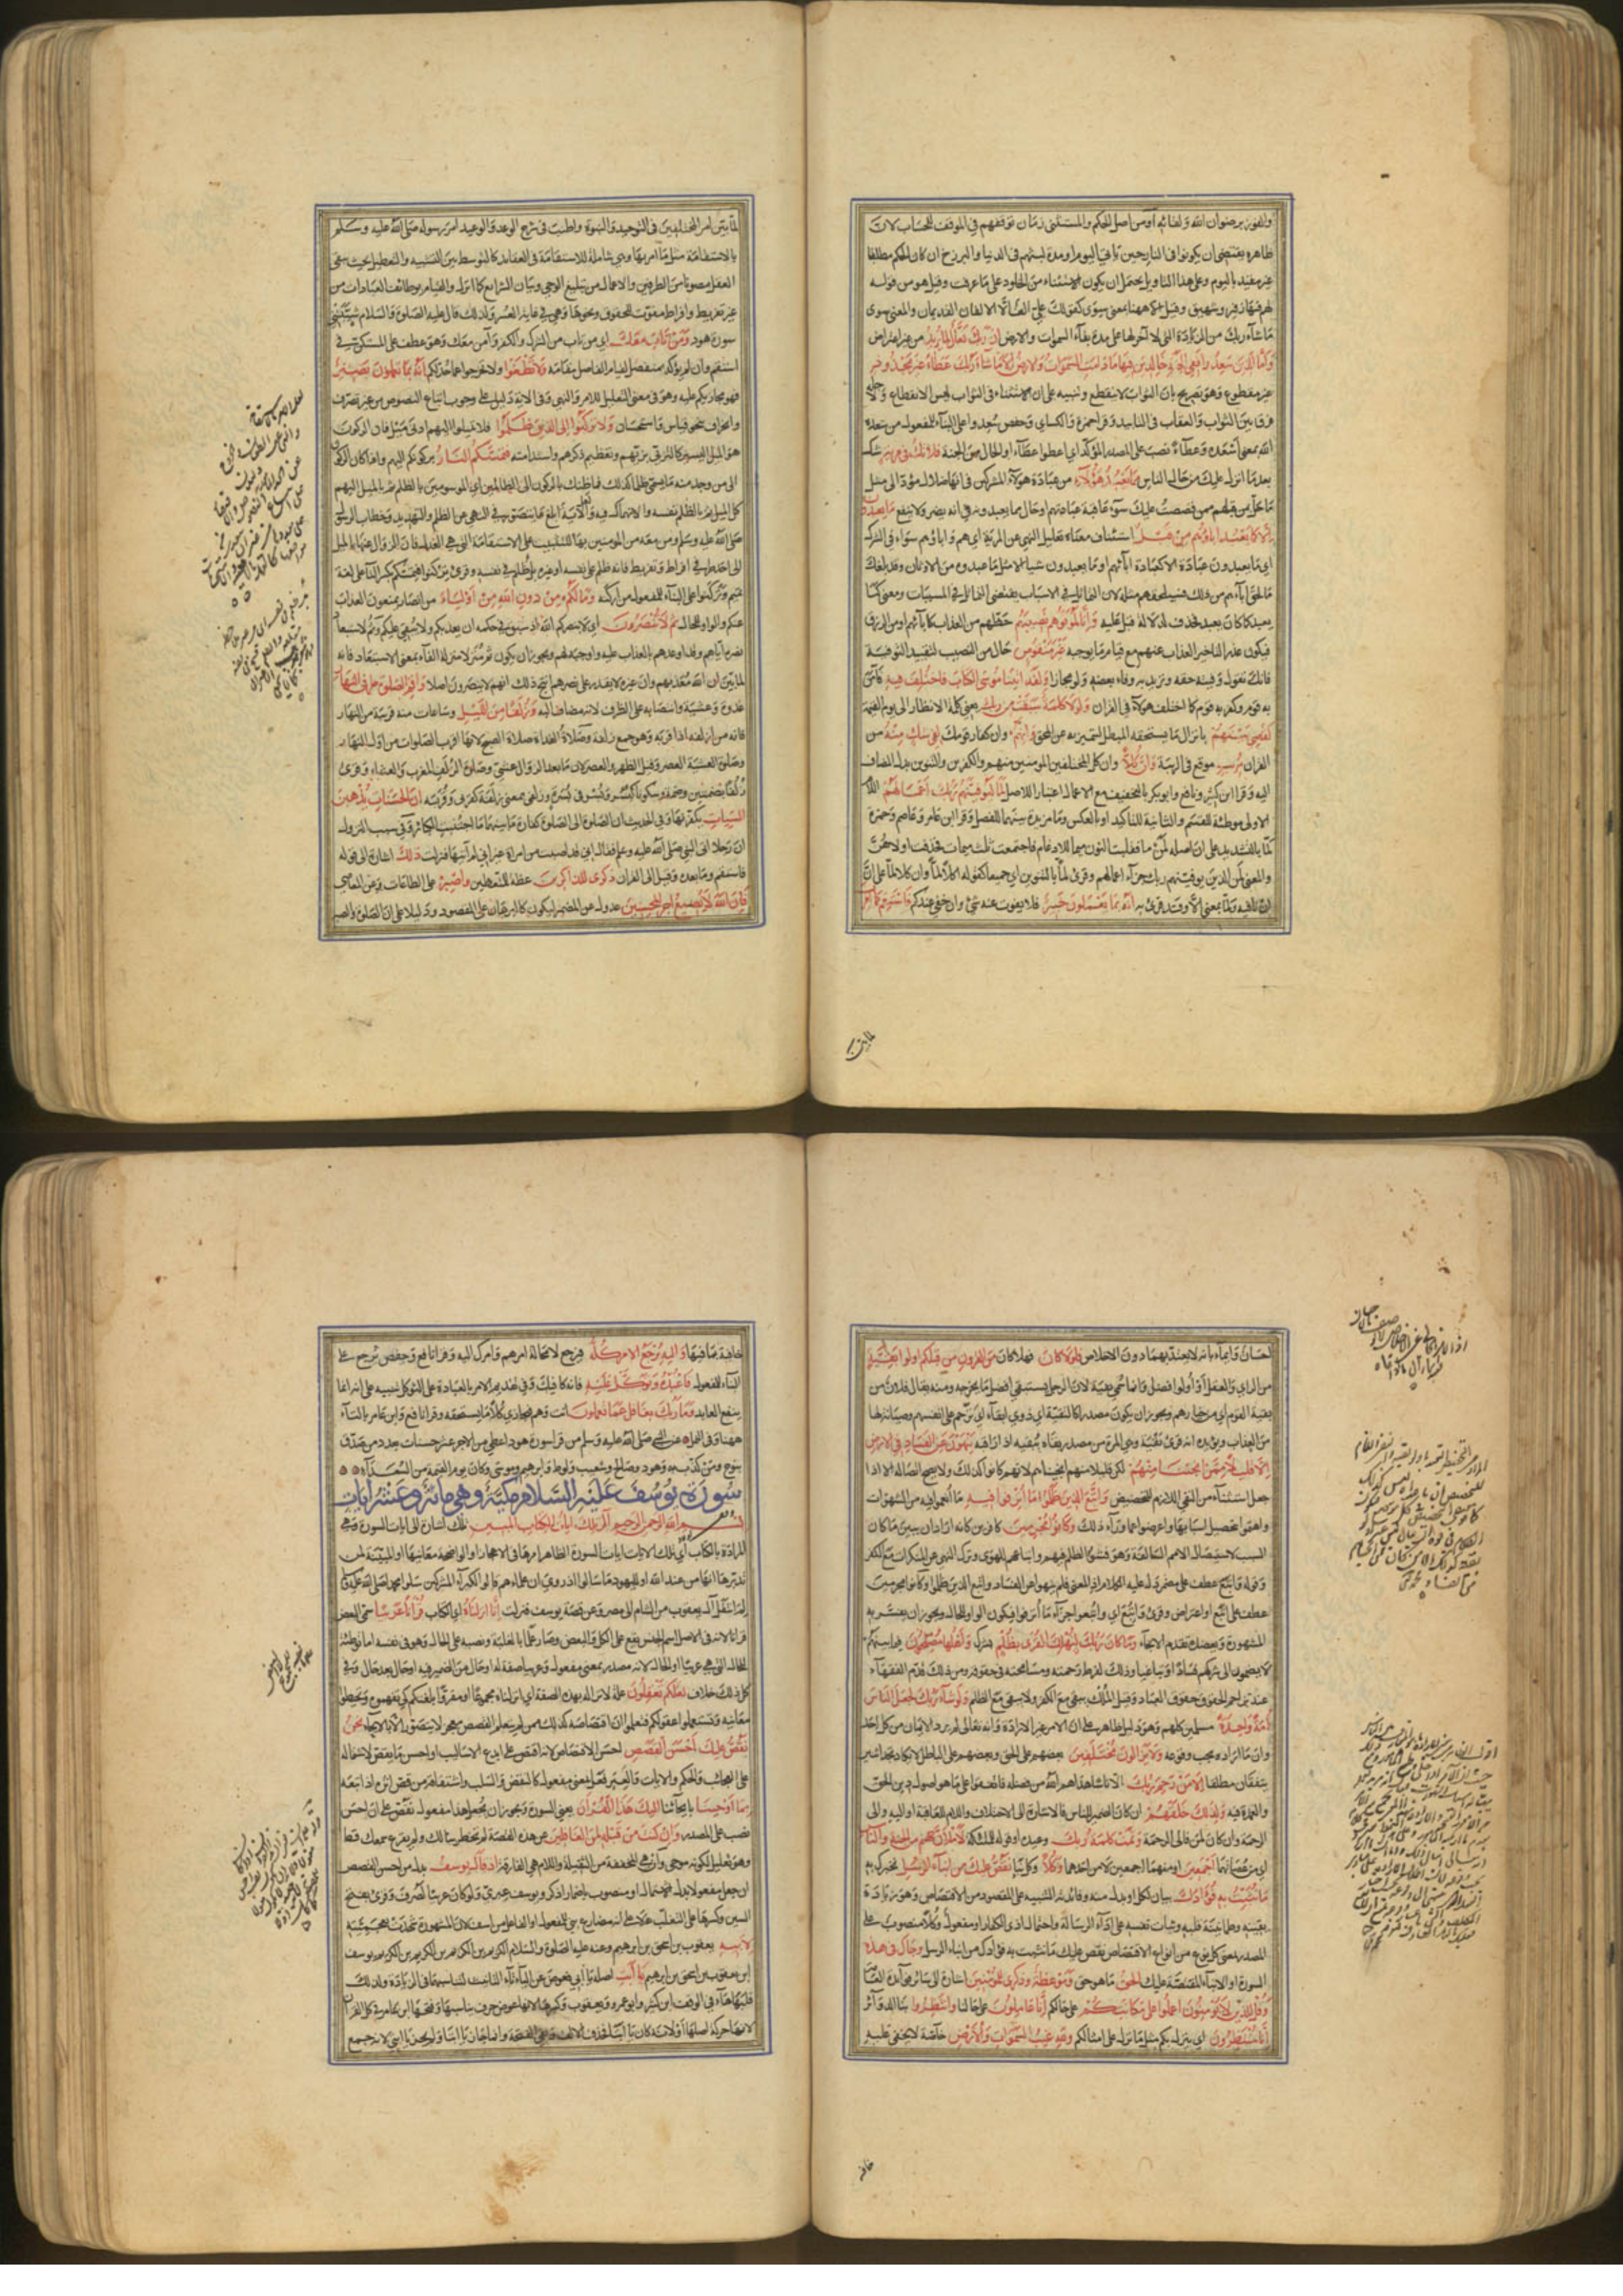 والفوز برضوان الله ولقائه او من اصل الحكم والمستثنى زمان توقفهم في الموقف للحساب لان
ظاهره يقتضي ان يكونوا في النار حين يأتي اليوم او مدة لبثهم في الدنيا والبرزخ ان كان الحكم مطلقا
غير مقيد باليوم وعلى هذا التاويل يحتمل ان يكون الاستثناء من الخلود على ما عرفت وقيل هو من قوله
لهم فيها زفير وشهيق وقيل الا ههنا بمعنى سوى كقولك على الف الا الالفان القديمان والمعنى سوى
ما شاء ربك من الزيادة التي لا آخر لها على مدة بقاء السموات والارض ان ربك فعال لما يريد من غير اعتراض
واما الذين سعدوا ففي الجنة خالدين فيها ما دامت السموات والارض الا ما شاء ربك عطاء غير مجذوذ
غير مقطوع وهو تصريح بان الثواب لا ينقطع وتنبيه على ان الاستثناء في الثواب ليس الانقطاع ولاجله
فرق بين الثواب والعقاب في التابيد وقرا حمزة والكسائي وحفص سعدوا على البناء للمفعول من سعده
الله بمعنى اسعده وعطاء نصب على المصدر المؤكد اي اعطوا عطاء او الحال من الجنة فلا تك في مرية شك
بعد ما انزل عليك من حال الناس مما يعبد هؤلاء من عبادة هؤلاء المشركين في انها ضلال مؤد الى مثل
ما حل بمن قبلهم ممن قصصت عليك سوء عاقبة عبادتهم او حال ما يعبدونه في انه يضر ولا ينفع ما يعبدون
الا كما يعبد اباؤهم من قبل استئناف معناه تعليل النهي عن المرية اي هم واباؤهم سواء في الشرك
اي ما يعبدون عبادة الا كعبادة آبائهم او ما يعبدون شيا الا مثل ما عبدوه من الاوثان وقد بلغك
ما لحق آباءهم من ذلك فسيلحقهم مثله لان التماثل في الاسباب يقتضي التماثل في المسببات ومعنى كما
يعبد كما كان يعبد فحذف لدلالة قبل عليه وانا لموفوهم نصيبهم حظهم من العذاب كآبائهم او من الرزق
فيكون عذرا لتاخير العذاب عنهم مع قيام ما يوجبه غير منقوص حال من النصيب لتقييد التوفية
فانك تقول وفيته حقه وتريد به وفاء بعضه ولو مجازا ولقد اتينا موسى الكتاب فاختلف فيه فآمن
به قوم وكفر به قوم كما اختلف هؤلاء في القران ولولا كلمة سبقت من ربك يعني كلمة الانظار الى يوم القيمة
لقضي بينهم بانزال ما يستحقه المبطل ليتميز به عن المحق وانهم وان كفار قومك لفي شك منه من
القران مريب موقع في الريبة وان كلا وان كل المختلفين المؤمنين منهم والكافرين والتنوين بدل المضاف
اليه وقرا ابن كثير ونافع وابو بكر بالتخفيف مع الاعمال اعتبارا للاصل لما ليوفينهم ربك اعمالهم اللام
الاولى موطئة للقسم والثانية للتاكيد او بالعكس وما مزيدة بينهما للفصل وقرا ابن عامر وعاصم وحمزة
لما بالتشديد على ان اصله لمن ما فقلبت النون ميما للادغام فاجتمعت ثلث ميمات فحذفت اولاهن
والمعنى لمن الذين يوفينهم ربك جزاء اعمالهم وقرئ لما بالتنوين اي جميعا كقوله اكلا لما وان كل لما على ان
ان نافية ولما بمعنى الا وقد قرئ به انه بما يعملون خبير فلا يفوت عنه شئ وان خفي عندكم فاستقم كما امرت
لما بين
لما بين امر المختلفين في التوحيد والنبوة واطنب في شرح الوعد والوعيد امر رسوله صلى الله عليه وسلم
بالاستقامة مثل ما امر بها وهي شاملة للاستقامة في العقايد كالتوسط بين التشبيه والتعطيل بحيث يبقى
العقل مصونا من الطرفين والاعمال من تبليغ الوحي وبيان الشرايع كما انزل والقيام بوظائف العبادات من
غير تفريط وافراط مفوت للحقوق ونحوها وهي في غاية العسر ولذلك قال عليه الصلوة والسلام شيبتني
سورة هود ومن تاب معك اي من تاب من الشرك والكفر وآمن معك وهو عطف على المستكن في
استقم وان لم يؤكد بمنفصل لقيام الفاصل مقامه ولا تطغوا ولا تخرجوا عما حد لكم انه بما تعملون بصير
فهو مجازيكم عليه وهو في معنى التعليل للامر والنهي وفي الاية دليل على وجوب اتباع النصوص من غير تصرف
وانحراف بنحو قياس واستحسان ولا تركنوا الى الذين ظلموا فلا تميلوا اليهم ادنى ميل فان الركون
هو الميل اليسير كالتزيي بزيهم وتعظيم ذكرهم واستدامته فتمسكم النار بركونكم اليهم واذا كان الركون
الى من وجد منه ما يسمى ظلما كذلك فما ظنك بالركون الى الظالمين اي الموسومين بالظلم ثم بالميل اليهم
كل الميل ثم بالظلم نفسه والانهماك فيه ولعل الآية ابلغ ما يتصور في النهي عن الظلم والتهديد وخطاب الرسول
صلى الله عليه وسلم ومن معه من المومنين بها للتثبيت على الاستقامة التي هي العدل فان الزوال عنها بالميل
الى احد طرفي افراط وتفريط فانه ظلم على نفسه او غيره بل ظلم في نفسه وقرئ تركنوا فتمسكم بكسر التا على لغة
تميم وتركنوا على البناء للمفعول من اركنه وما لكم من دون الله من اولياء من انصار يمنعون العذاب
عنكم والواو للحال ثم لا تنصرون اي لا ينصركم الله اذ سبق في حكمه ان يعذبكم ولا يبقي عليكم وثم لاستبعاد
نصره اياهم وقد اوعدهم بالعذاب عليه واوجبه لهم ويجوز ان يكون ثم منزلا منزلة الفاء بمعنى الاستبعاد فانه
لما بين ان الله معذبهم وان غيره لا يقدر على نصرهم انتج ذلك انهم لا ينصرون اصلا واقم الصلوة طرفي النهار
غدوة وعشية وانتصابه على الظرف لانه مضاف اليه وزلفا من الليل وساعات منه قريبة من النهار
فانه من ازلفه اذا قربه وهو جمع زلفة وصلاة الغداة صلاة الصبح لانها اقرب الصلوات من اول النهار
وصلوة العشية العصر وقيل الظهر والعصر لان ما بعد الزوال عشي وصلوة الزلف المغرب والعشاء وقرئ
زلفا بضمتين وضمة وسكون كبسر وبسر في بسرة وزلفى بمعنى زلفة كقربى وقربة ان الحسنات يذهبن
السيئات يكفرنها وفي الحديث ان الصلوة الى الصلوة كفارة ما بينهما ما اجتنبت الكبائر وفي سبب النزول
ان رجلا اتى النبي صلى الله عليه وسلم فقال اني قد اصبت من امراة غير اني لم آتها فنزلت ذلك اشارة الى قوله
فاستقم وما بعده وقيل الى القران ذكرى للذاكرين عظة للمتعظين واصبر على الطاعات وعن المعاصي
فان الله لا يضيع اجر المحسنين عدول عن المضمر ليكون كالبرهان على المقصود ودليلا على ان الصلوة والصبر
احسان وايماء بانه لا يعتد بهما دون الاخلاص فلولا كان فهلا كان من القرون من قبلكم اولوا بقية
من الراي والعقل او اولوا فضل وانما سمي بقية لان الرجل يستبقي افضل ما يخرجه ومنه يقال فلان من
بقية القوم اي من خيارهم ويجوز ان يكون مصدرا كالتقية اي ذوي ابقاء اي ترحم على انفسهم وصيانة لها
من العذاب ويؤيده انه قرئ بقية وهي المرة من مصدر بقاه يبقيه اذا راقبه ينهون عن الفساد في الارض
الا قليلا ممن انجينا منهم لكن قليلا منهم انجيناهم لانهم كانوا كذلك ولا يصح اتصاله الا اذا
جعل استثناء من النفي اللازم للتحضيض واتبع الذين ظلموا ما اترفوا فيه ما انعموا فيه من الشهوات
واهتموا بتحصيل اسبابها واعرضوا عما وراء ذلك وكانوا مجرمين كافرين كانه اراد ان يبين ما كان
السبب لاستيصال الامم السالفة وهو فشو الظلم فيهم واتباعهم للهوى وترك النهي عن المنكرات مع الكفر
وقوله واتبع عطف على مضمر دل عليه الكلام اذ المعنى فلم ينهوا عن الفساد واتبع الذين ظلموا وكانوا مجرمين
عطف على اتبع او اعتراض وقرئ واتبع اي واتبعوا جزاء ما اترفوا فيكون الواو للحال ويجوز ان يفسر به
المشهورة ويعضده تقدم الانجاء وما كان ربك ليهلك القرى بظلم بشرك واهلها مصلحون فيما بينهم
لا يضمون الى شركهم فسادا وتباغيا وذلك لفرط رحمته ومسامحته في حقوقه ومن ذلك قدم الفقهاء
عند تزاحم الحقوق حقوق العباد وقيل الملك يبقى مع الكفر ولا يبقى مع الظلم ولو شاء ربك لجعل الناس
امة واحدة مسلمين كلهم وهو دليل ظاهر على ان الامر غير الارادة وانه تعالى لم يرد الايمان من كل احد
وان ما اراده يجب وقوعه ولا يزالون مختلفين بعضهم على الحق وبعضهم على الباطل لا تكاد تجد اثنين
يتفقان مطلقا الا من رحم ربك الا ناسا هداهم الله من فضله فاتفقوا على ما هو اصول دين الحق
والعمدة فيه ولذلك خلقهم ان كان الضمير للناس فالاشارة الى الاختلاف واللام للعاقبة او اليه والى
الرحمة وان كان لمن فالى الرحمة وتمت كلمة ربك وعيده او قوله للملئكة لاملان جهنم من الجنة والناس
اي من عصاتهما اجمعين او منهما اجمعين لا من احدهما وكلا وكل نبا نقص عليك من انباء الرسل نخبرك به
ما نثبت به فؤادك بيان لكلا او بدل منه وفائدته التنبيه على المقصود من الاقتصاص وهو زيادة
يقينه وطمانينة قلبه وثبات نفسه على اداء الرسالة واحتمال اذى الكفار او مفعول وكلا منصوب على
المصدر بمعنى كل نوع من انواع الاقتصاص نقص عليك ما نثبت به فؤادك من انباء الرسل وجاك في هذه
السورة او الانباء المقتصة عليك الحق ما هو حق وموعظة وذكرى للمؤمنين اشارة الى سائر فوائده العامة
وقل للذين لا يؤمنون اعملوا على مكانتكم على حالكم انا عاملون على حالنا وانتظروا بنا الدوائر
انا منتظرون اي ينزل بكم مثل ما نزل على امثالكم ولله غيب السموات والارض خاصة لا يخفى عليه
خافية
خافية مما فيهما واليه يرجع الامر كله فيرجع لا محالة امرهم وامرك اليه وقرا نافع وحفص يرجع على
البناء للمفعول فاعبده وتوكل عليه فانه كافيك وفي تقديم الامر بالعبادة على التوكل تنبيه على انه انما
ينفع العابد وما ربك بغافل عما تعملون انت وهم فيجازي كلا ما يستحقه وقرا نافع وابن عامر بالتاء
ههنا وفي النمل عن النبي صلى الله عليه وسلم من قرا سورة هود اعطي من الاجر عشر حسنات بعدد من صدق
بنوح ومن كذب به وهود وصالح وشعيب ولوط وابرهيم وموسى وكان يوم القيمة من السعداء
سورة يوسف عليه السلام مكية وهي مائة وعشر ايات
بسم الله الرحمن الرحيم الر تلك ايات الكتاب المبين تلك اشارة الى ايات السورة وهي
المرادة بالكتاب اي تلك الايات ايات السورة الظاهر امرها في الاعجاز او الواضحة معانيها او المبينة لمن
تدبرها انها من عند الله او لليهود ما سالوا اذ روي ان علماءهم قالوا لكبراء المشركين سلوا محمدا صلى الله عليه وسلم
لم انتقل آل يعقوب من الشام الى مصر وعن قصة يوسف فنزلت انا انزلناه اي الكتاب قرآنا عربيا سمي البعض
قرانا لانه في الاصل اسم الجنس يقع على الكل والبعض وصار علما بالغلبة ونصبه على الحال وهو في نفسه اما توطئة
للحال التي هي عربيا او للحال لانه مصدر بمعنى مفعول وعربيا صفة له او حال من الضمير فيه او حال بعد حال وفي
كل ذلك خلاف لعلكم تعقلون علة لانزاله بهذه الصفة اي انزلناه مجموعا او مقروا بلغتكم كي تفهموه وتحيطوا
معانيه وتستعملوا عقولكم فتعلموا ان اقتصاصه كذلك ممن لم يتعلم القصص معجز لا يتصور الا بالايحاء نحن
نقص عليك احسن القصص احسن الاقتصاص لانه اقتص على ابدع الاساليب او احسن ما يقص لاشتماله
على العجائب والحكم والايات والعبر فعل بمعنى مفعول كالنقض والسلب واشتقاقه من قص اثره اذا تبعه
بما اوحينا بايحائنا اليك هذا القران يعني السورة ويجوز ان يجعل هذا مفعول نقص على ان احسن
نصب على المصدر وان كنت من قبله لمن الغافلين عن هذه القصة لم تخطر ببالك ولم يقرع سمعك قط
وهو تعليل لكونه موحى وان هي المخففة من الثقيلة واللام هي الفارقة اذ قال يوسف بدل من احسن القصص
ان جعل مفعولا بدل الاشتمال او منصوب باضمار اذكر ويوسف عبري ولو كان عربيا لصرف وقرئ بفتح
السين وكسرها على التلعب به لا على انه مضارع بني للمفعول او الفاعل من اسف لان المشهورة شهدت بعجمته
لابيه يعقوب بن اسحق بن ابرهيم وعنه عليه الصلوة والسلام الكريم بن الكريم بن الكريم بن الكريم يوسف
ابن يعقوب بن اسحق بن ابرهيم يا ابت اصله يا ابي فعوض عن الياء تاء التانيث لتناسبهما في الزيادة ولذلك
قلبها هاء في الوقف ابن كثير وابو عمرو ويعقوب وكسرها لانها عوض حرف يناسبها وفتحها ابن عامر في كل القران
لانها حركة اصلها او لانه كان يا ابتا فحذف الالف وبقي الفتحة وانما جاز يا ابتا ولم يجز يا ابتي لانه جمع